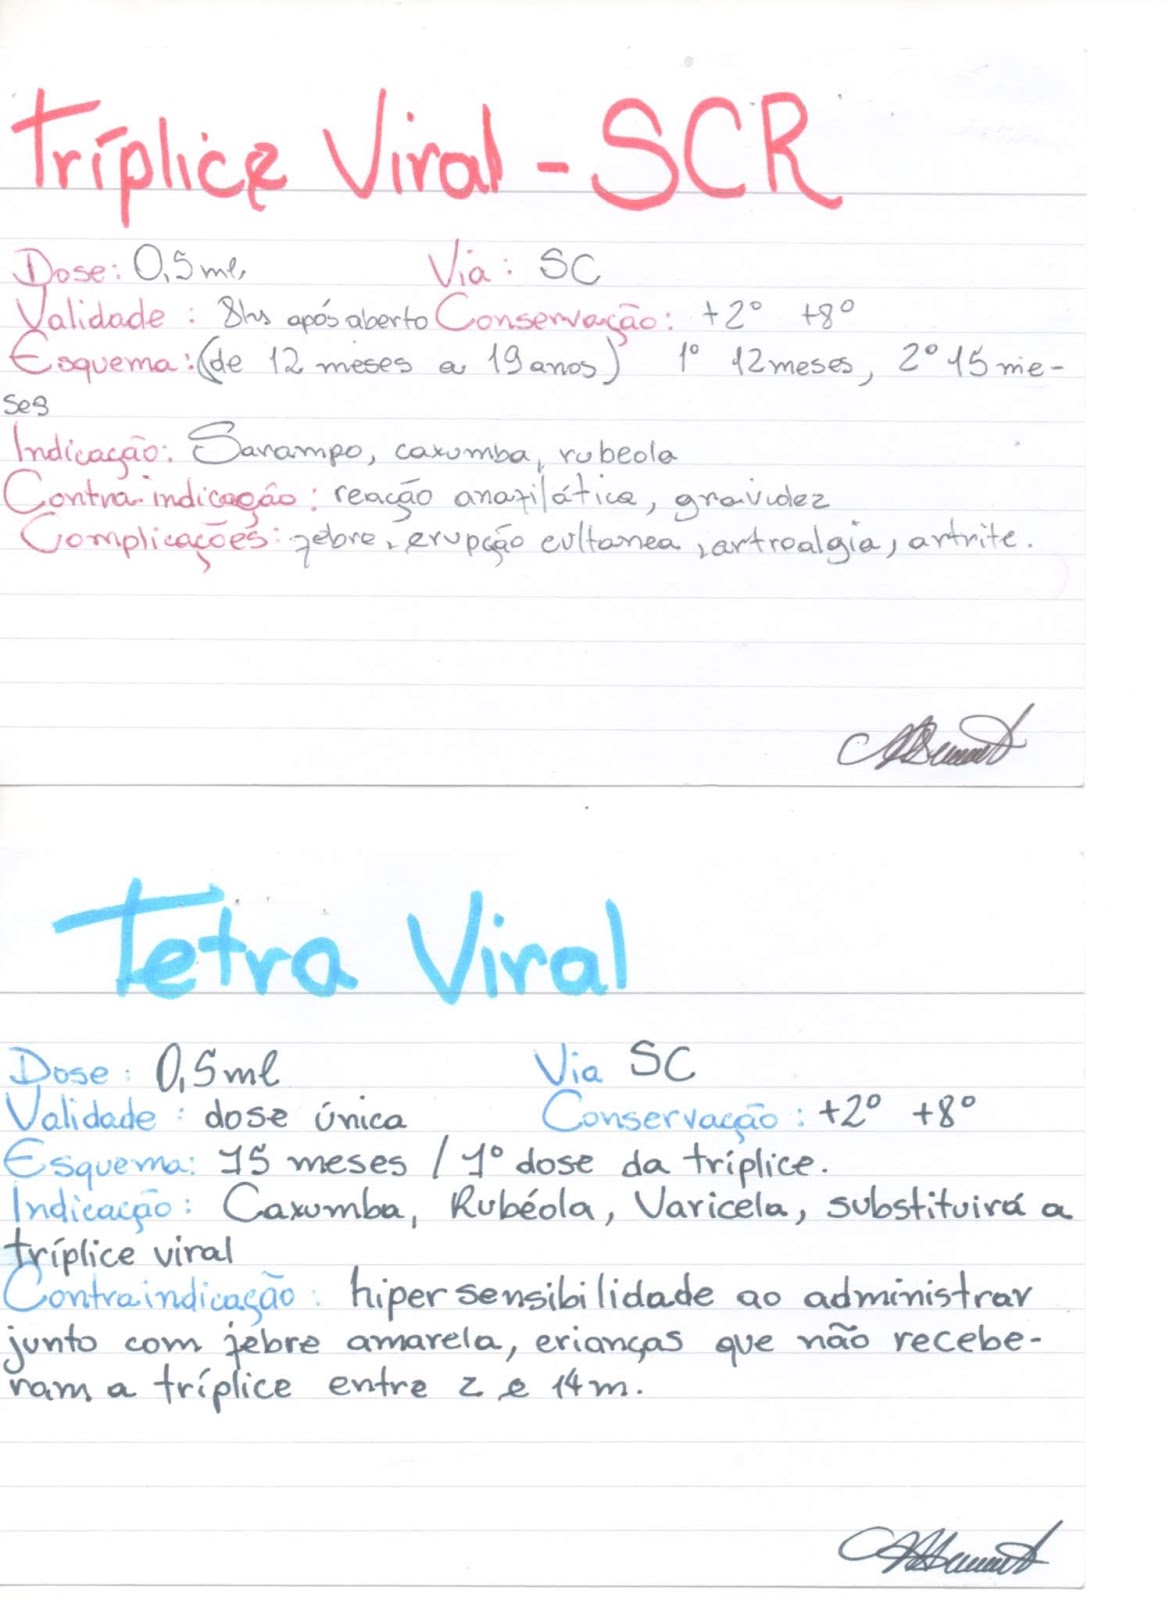 Tríplice Viral - SCR
Dose: 0,5 ml, Via: SC
Validade: 8hs após aberto Conservação: +2° +8°
Esquema: (de 12 meses a 19 anos) 1° 12 meses, 2° 15 me-
ses
Indicação: Sarampo, caxumba, rubeola
Contra indicação: reação anafilática, gravidez
Complicações: febre, erupção cultanea, artroalgia, artrite.
Tetra Viral
Dose: 0,5 ml Via SC
Validade: dose única Conservação: +2° +8°
Esquema: 15 meses / 1° dose da tríplice.
Indicação: Caxumba, Rubéola, Varicela, substituirá a
tríplice viral
Contraindicação: hipersensibilidade ao administrar
junto com febre amarela, crianças que não recebe-
ram a tríplice entre 2 e 14 m.